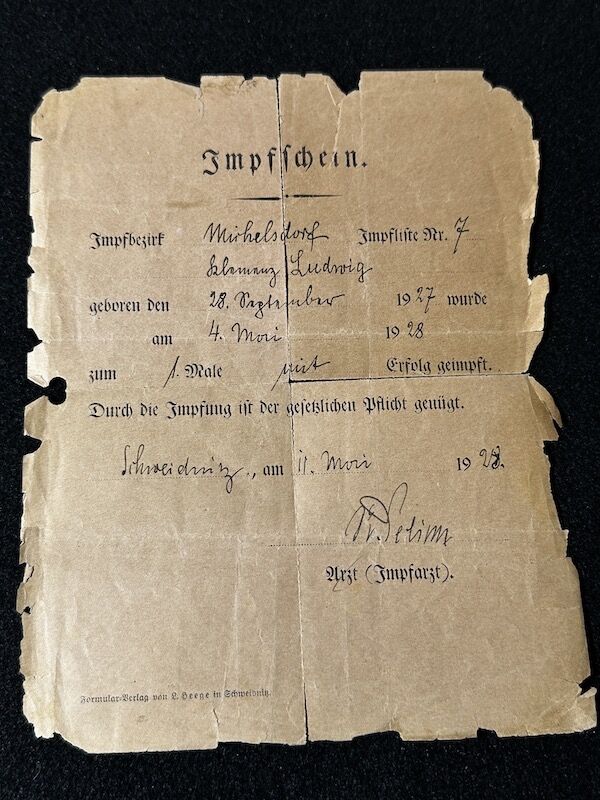 Impfschein.
Impfbezirk Michelsdorf Impfliste Nr. 7
Klemenz Ludwig
geboren den 28. September 1927 wurde
am 4. Mai 1928
zum 1. Male mit Erfolg geimpft.
Durch die Impfung ist der gesetzlichen Pflicht genügt.
Schweidnitz, am 11. Mai 1928.
Arzt (Impfarzt).
Formular-Verlag von L. Heege in Schweidnitz.